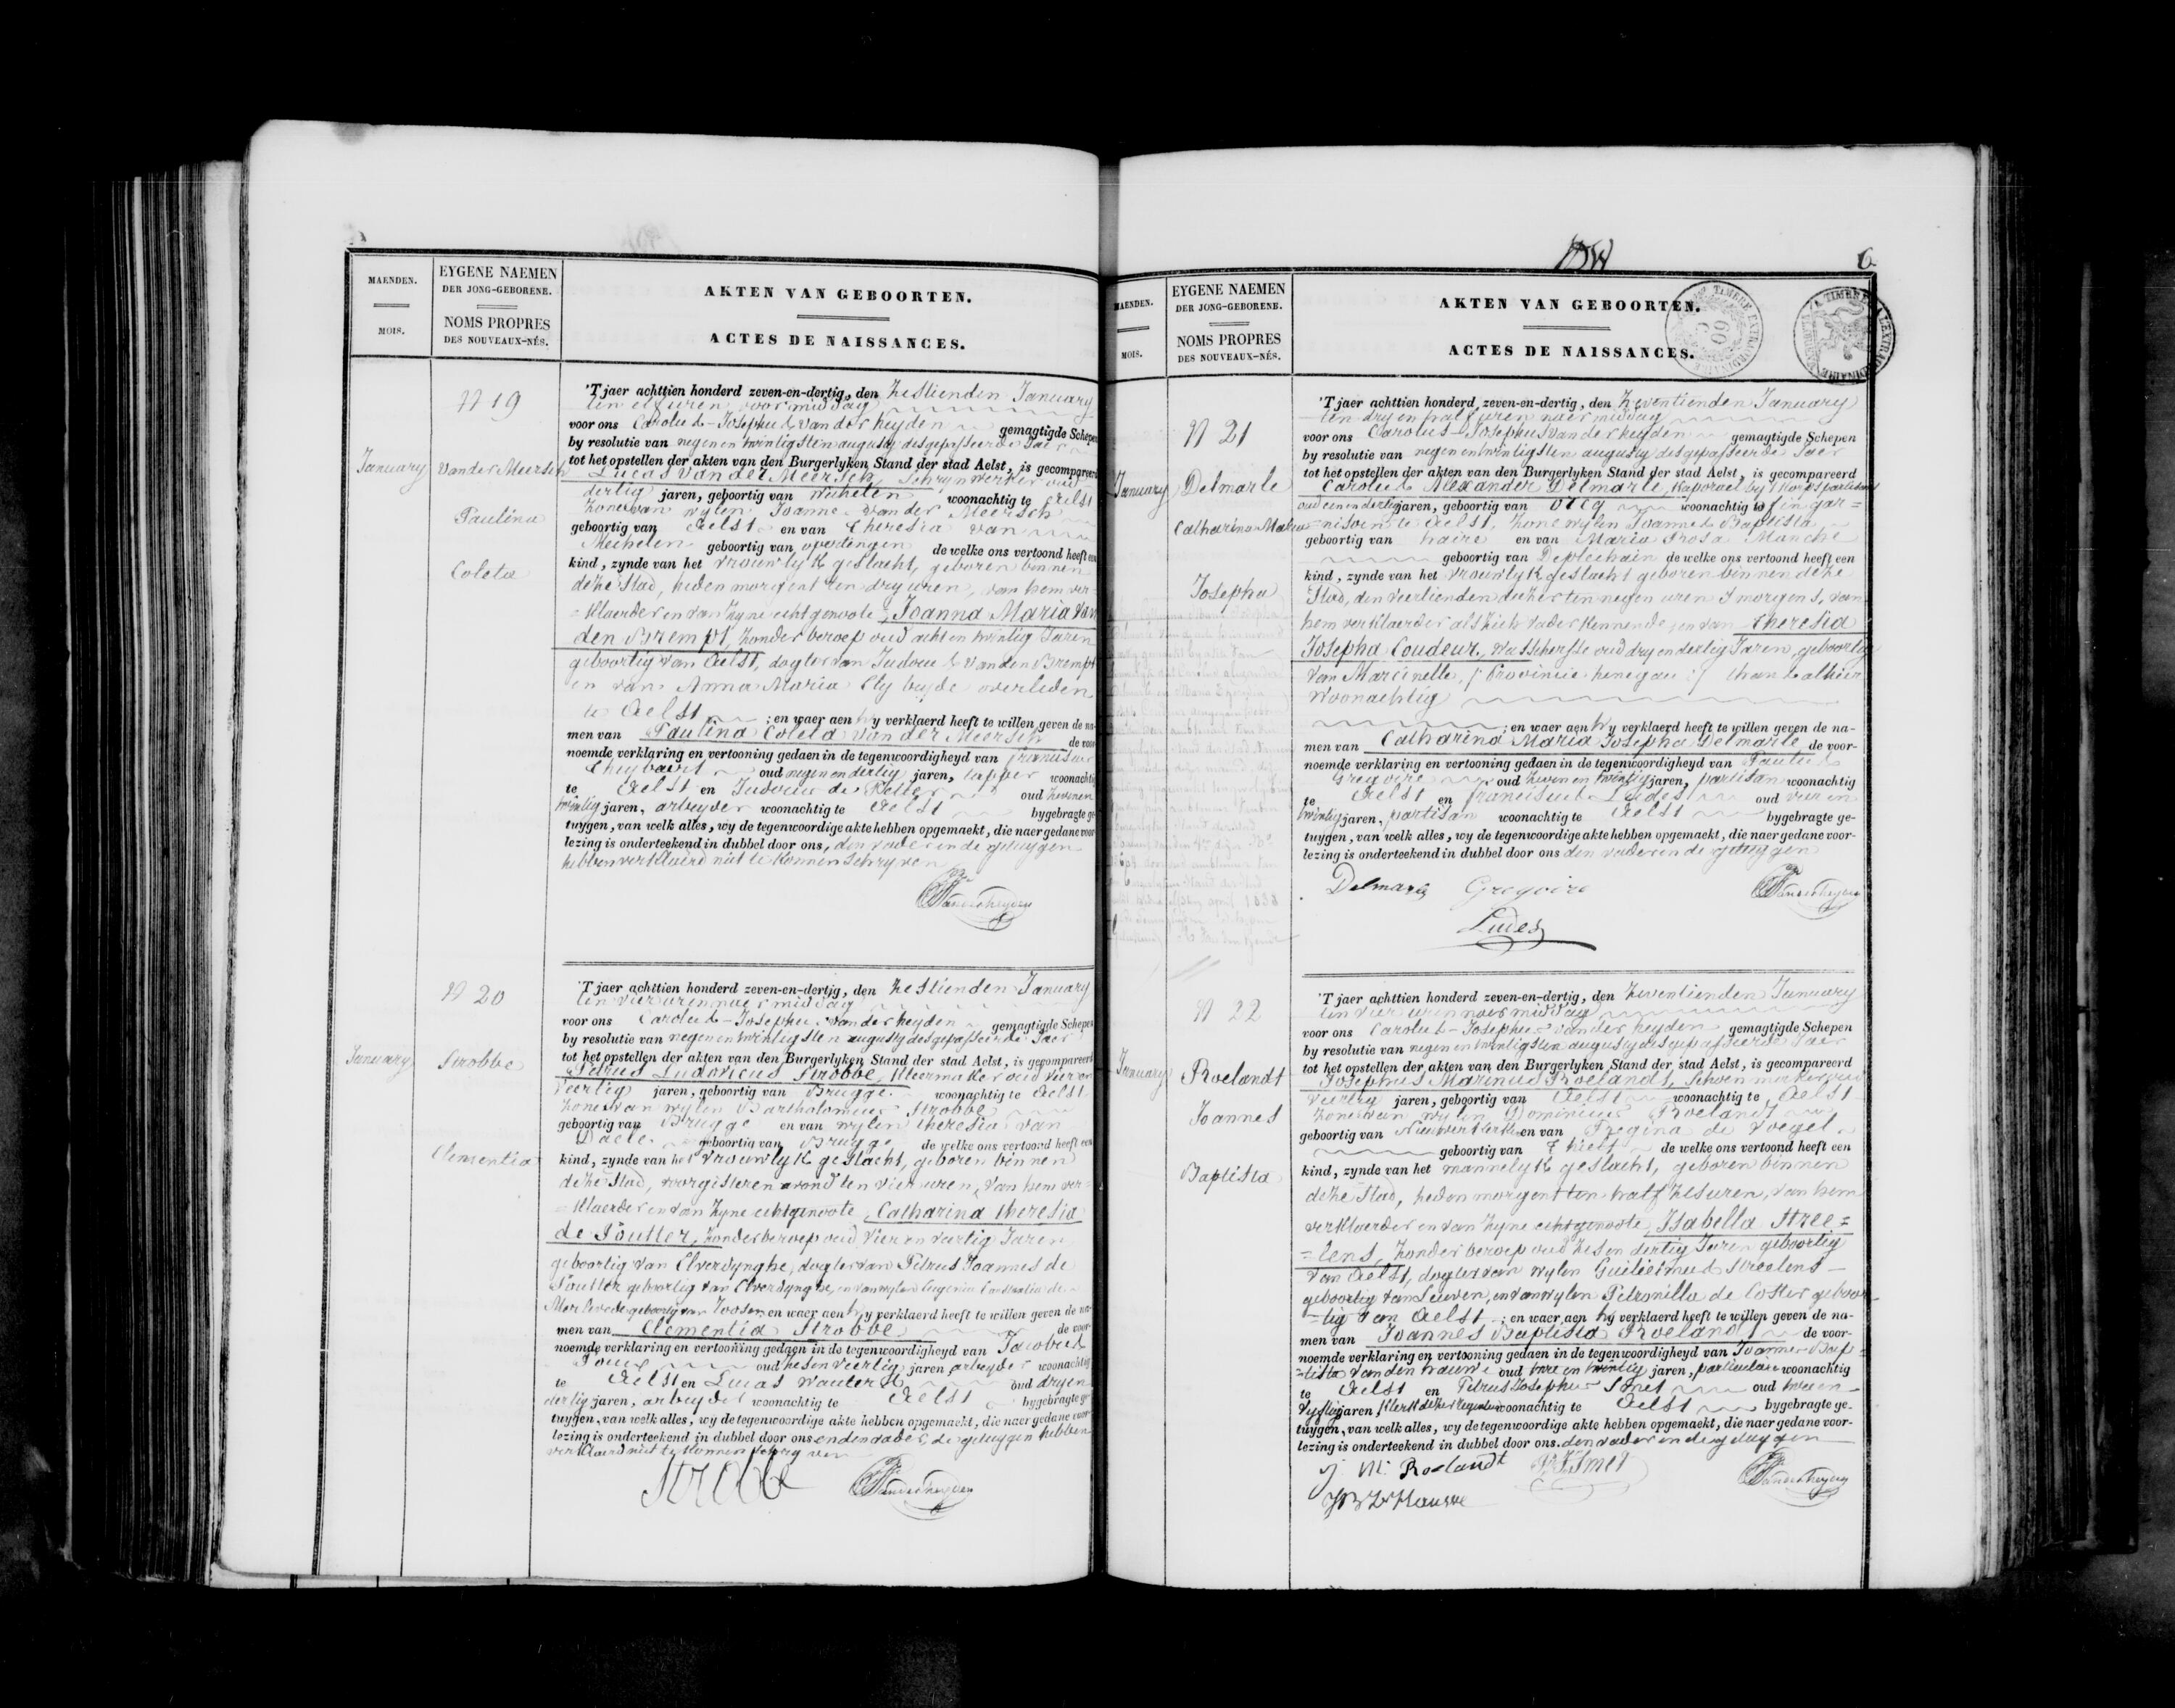 MAENDEN.
MOIS.
EYGENE NAEMEN
DER JONG-GEBORENE.
NOMS PROPRES
DES NOUVEAUX-NÉS.
AKTEN VAN GEBOORTEN.
ACTES DE NAISSANCES.
N 19
January
Van der Meersch
Paulina
Coleta
'T jaer achttien honderd zeven-en-dertig, den Zestienden January
ten elf uren voormiddag
voor ons Carolus-Josephus van der heyden gemagtigde Schepen
by resolutie van negen en twintigsten augusty desgepasseerde Jaer
tot het opstellen der akten van den Burgerlyken Stand der stad Aelst, is gecompareerd
Lucas Van der Meersch, Schrynwerker oud
dertig jaren, geboortig van Wicheten woonachtig te Aelst
Zone van wylen Joannes van der Meersch
geboortig van Aelst en van Theresia van
Mechelen geboortig van de welke ons vertoond heeft een
kind, zynde van het vrouwlyk geslacht, geboren binnen
deze Stad, heden morgent ten dry uren, van hem ver=
=klaerder en van zyne echtgenoote Joanna Maria Van
den Brempt, zonder beroep oud acht en twintig Jaren
geboortig van Aelst, dogter van Judocus van den Brempt
en van Anna Maria Ely beyde overleden
te Aelst ; en waer aen hy verklaerd heeft te willen geven de na-
men van Paulina Coleta Van der Meersch de voor-
noemde verklaring en vertooning gedaen in de tegenwoordigheyd van franciscus
Cheybaert oud negen en dertig jaren, tapper woonachtig
te Aelst en Judocus de Ketter oud zeven en
twintig jaren, arbeyder woonachtig te Aelst bygebragte ge-
tuygen, van welk alles, wy de tegenwoordige akte hebben opgemaekt, die naer gedane voor-
lezing is onderteekend in dubbel door ons, den vader en de getuygen
hebben verklaerd niet te konnen schryven
Vanderheyden
N 20
January
Strobbe
Clementia
'T jaer achttien honderd zeven-en-dertig, den Zestienden January
ten vier uren naermiddag
voor ons Carolus-Josephus van der heyden gemagtigde Schepen
by resolutie van negen en twintigsten augusty desgepasseerde Jaer
tot het opstellen der akten van den Burgerlyken Stand der stad Aelst, is gecompareerd
Petrus Ludovicus Strobbe, kleermaker oud vier en
veertig jaren, geboortig van Brugge woonachtig te Aelst
Zone van wylen Bartholomeus Strobbe
geboortig van Brugge en van wylen theresia van
Daele geboortig van Brugge de welke ons vertoond heeft een
kind, zynde van het vrouwlyk geslacht, geboren binnen
deze Stad, eergisteren avond ten vier uren, van hem ver=
=klaerder en van Zyne echtgenoote, Catharina theresia
de Soutter, zonder beroep oud vier en veertig Jaren
geboortig van Elverdynghe, dogter van Petrus Joannes de
Soutter geboortig van Elverdynghe, en van wylen Eugenia Constantia de
geboortig van en waer aen hy verklaerd heeft te willen geven de na-
men van Clementia Strobbe de voor-
noemde verklaring en vertooning gedaen in de tegenwoordigheyd van Jacobus
oud zes en veertig jaren, arbeyder woonachtig
te Aelst en Lucas Wauters oud dry en
dertig jaren, arbeyder woonachtig te Aelst bygebragte ge-
tuygen, van welk alles, wy de tegenwoordige akte hebben opgemaekt, die naer gedane voor-
lezing is onderteekend in dubbel door ons en den vader, de getuygen hebben
verklaerd niet te konnen schryven
Strobbe Vanderheyden
6
MAENDEN.
MOIS.
EYGENE NAEMEN
DER JONG-GEBORENE.
NOMS PROPRES
DES NOUVEAUX-NÉS.
AKTEN VAN GEBOORTEN.
ACTES DE NAISSANCES.
TIMBRE EXTRAORDINAIRE
A TIMBRE A L'EXTRAORDINAIRE
N 21
January
Delmarle
Catharina Maria
Josepha
'T jaer achttien honderd zeven-en-dertig, den Zeventienden January
ten dry en half uren naer middag
voor ons Carolus-Josephus van der heyden gemagtigde Schepen
by resolutie van negen en twintigsten augusty desgepasseerde Jaer
tot het opstellen der akten van den Burgerlyken Stand der stad Aelst, is gecompareerd
Carolus Alexander Delmarle, kaporael by 't korps partisans
oud een en dertig jaren, geboortig van woonachtig te in gar=
=nisoen te Aelst, Zone wylen Joannes Baptista
geboortig van haire en van Maria Rosa Manche
geboortig van Deplechain de welke ons vertoond heeft een
kind, zynde van het vrouwlyk geslacht geboren binnen deze
Stad, den veertienden dezer ten negen uren s'morgens, van
hem verklaerder als vader kennende en van theresia
Josepha Coudeur, wasschersse oud dry en dertig Jaren, geboortig
van Marcinelle, (: Provincie henegau :) thans alhier
woonachtig
; en waer aen hy verklaerd heeft te willen geven de na-
men van Catharina Maria Josepha Delmarle de voor-
noemde verklaring en vertooning gedaen in de tegenwoordigheyd van Paulus
Gregoire oud zeven en twintig jaren, partisan woonachtig
te Aelst en franciscus Ludes oud vier en
twintig jaren, partisan woonachtig te Aelst bygebragte ge-
tuygen, van welk alles, wy de tegenwoordige akte hebben opgemaekt, die naer gedane voor-
lezing is onderteekend in dubbel door ons den vader en de getuygen
Delmarle Gregoire Vanderheyden
Ludes
N 22
January
Roelandt
Joannes
Baptista
'T jaer achttien honderd zeven-en-dertig, den Zeventienden January
ten vier uren naer middag
voor ons Carolus-Josephus van der heyden gemagtigde Schepen
by resolutie van negen en twintigsten augusty desgepasseerde Jaer
tot het opstellen der akten van den Burgerlyken Stand der stad Aelst, is gecompareerd
Josephus Marinus Roelandt, Schoenmaker oud
veertig jaren, geboortig van Aelst woonachtig te Aelst
Zone van wylen Dominicus Roelandt
geboortig van Nieuwerkerken en van Regina de Voegel
geboortig van de welke ons vertoond heeft een
kind, zynde van het mannelyk geslacht, geboren binnen
deze Stad, heden morgent ten half zes uren, van hem
verklaerder en van zyne echtgenoote, Isabella Stree=
=lens, zonder beroep oud zes en dertig Jaren geboortig
van Aelst, dogter van wylen Guilielmus Streelens
geboortig van Leuven, en van wylen Petronilla de Coster geboor-
=tig van Aelst ; en waer aen hy verklaerd heeft te willen geven de na-
men van Joannes Baptista Roelandt de voor-
noemde verklaring en vertooning gedaen in de tegenwoordigheyd van Joannes Bap=
=tista Van den hauwe oud twee en twintig jaren, particulier woonachtig
te Aelst en Petrus Josephus Smet oud twee en
vyftig jaren, klerk dezer woonachtig te Aelst bygebragte ge-
tuygen, van welk alles, wy de tegenwoordige akte hebben opgemaekt, die naer gedane voor-
lezing is onderteekend in dubbel door ons. den vader en de getuygen
J M. Roelandt Smet Vanderheyden